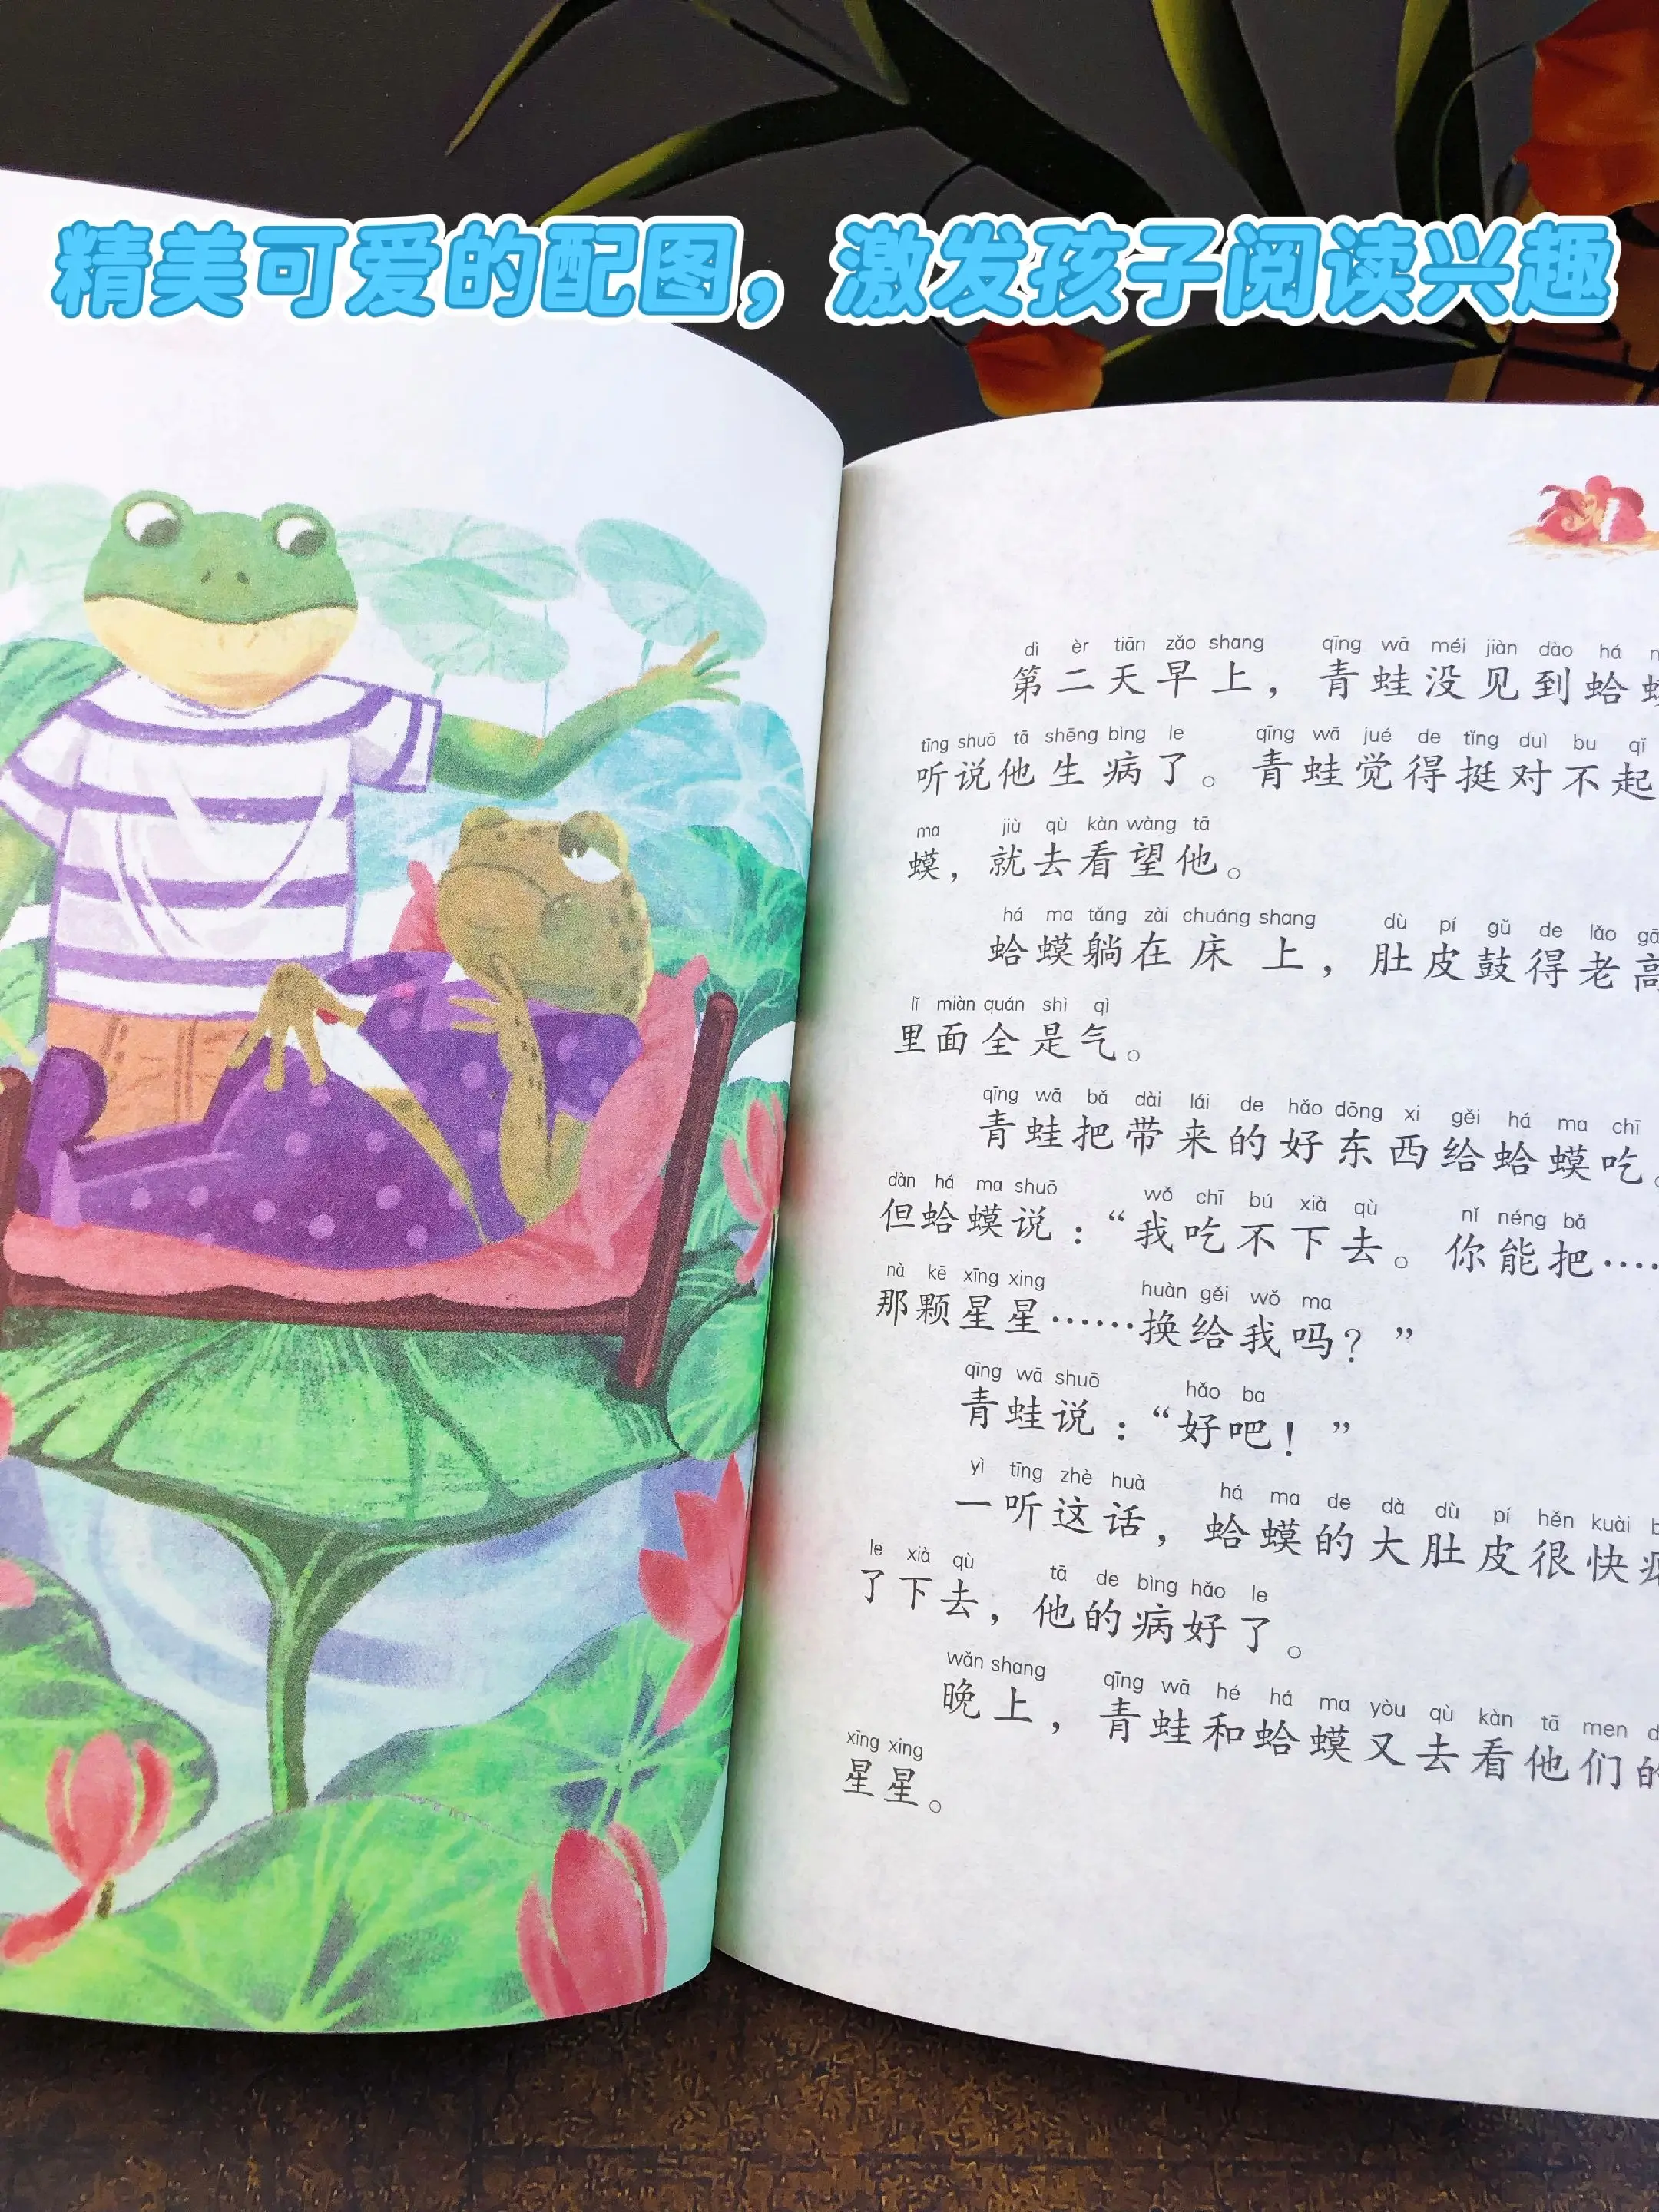 精美可爱的配图，激发孩子阅读兴趣
dì èr tiān zǎo shang qīng wā méi jiàn dào há
第二天早上，青蛙没见到蛤蟆
tīng shuō tā shēng bìng le qīng wā jué de tǐng duì bu qǐ
听说他生病了。青蛙觉得挺对不起
ma jiù qù kàn wàng tā
蟆，就去看望他。
há ma tǎng zài chuáng shang dù pí gǔ de lǎo gā
蛤蟆躺在床上，肚皮鼓得老高
lǐ miàn quán shì qì
里面全是气。
qīng wā bǎ dài lái de hǎo dōng xi gěi há ma chī
青蛙把带来的好东西给蛤蟆吃。
dàn há ma shuō wǒ chī bú xià qù nǐ néng bǎ
但蛤蟆说：“我吃不下去。你能把……
nà kē xīng xing huàn gěi wǒ ma
那颗星星……换给我吗？”
qīng wā shuō hǎo ba
青蛙说：“好吧！”
yì tīng zhè huà há ma de dà dù pí hěn kuài
一听这话，蛤蟆的大肚皮很快
le xià qù tā de bìng hǎo le
了下去，他的病好了。
wǎn shang qīng wā hé há ma yòu qù kàn tā men
晚上，青蛙和蛤蟆又去看他们的
xīng xing
星星。